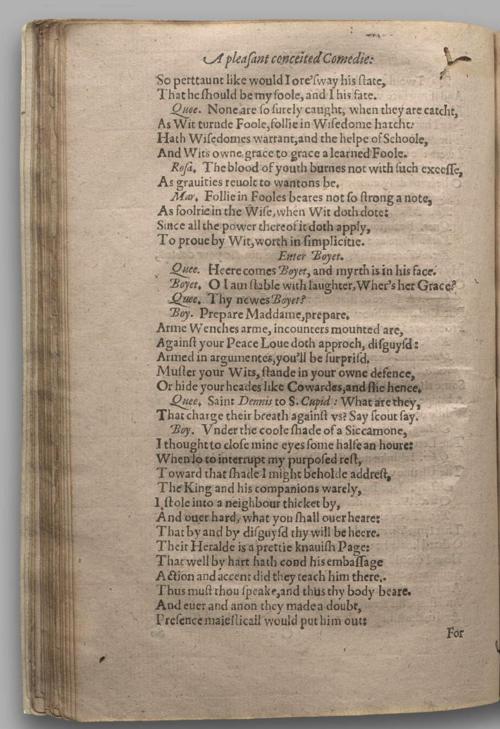 A pleaſant conceited Comedie:
So perttaunt like would I ore'ſway his ſtate,
That he ſhould be my foole, and I his fate.
Quee. None are ſo ſurely caught, when they are catcht,
As Wit turnde Foole, follie in Wiſedome hatcht:
Hath Wiſedomes warrant, and the helpe of Schoole,
And Wits owne grace to grace a learned Foole.
Roſa. The blood of youth burnes not with ſuch exceſſe,
As grauities reuolt to wantons be.
Mar. Follie in Fooles beares not ſo ſtrong a note,
As foolrie in the Wiſe, when Wit doth dote:
Since all the power thereof it doth apply,
To proue by Wit, worth in ſimplicitie.
Enter Boyet.
Quee. Heere comes Boyet, and myrth is in his face.
Boyet. O I am ſtable with laughter, Wher's her Grace?
Quee. Thy newes Boyet?
Boy. Prepare Maddame, prepare.
Arme Wenches arme, incounters mounted are,
Againſt your Peace Loue doth approch, diſguyſd:
Armed in argumentes, you'll be ſurpriſd.
Muſter your Wits, ſtande in your owne defence,
Or hide your heades like Cowardes, and flie hence.
Quee. Saint Dennis to S. Cupid: What are they,
That charge their breath againſt vs? Say ſcout ſay.
Boy. Vnder the coole ſhade of a Siccamone,
I thought to cloſe mine eyes ſome halfe an houre:
When lo to interrupt my purpoſed reſt,
Toward that ſhade I might beholde addreſt,
The King and his companions warely,
I ſtole into a neighbour thicket by,
And ouer hard, what you ſhall ouer heare:
That by and by diſguyſd thy will be heere.
Their Heralde is a prettie knauiſh Page:
That well by hart hath cond his embaſſage
Action and accent did they teach him there.
Thus muſt thou ſpeake, and thus thy body beare.
And euer and anon they made a doubt,
Preſence maieſticall would put him out:
For